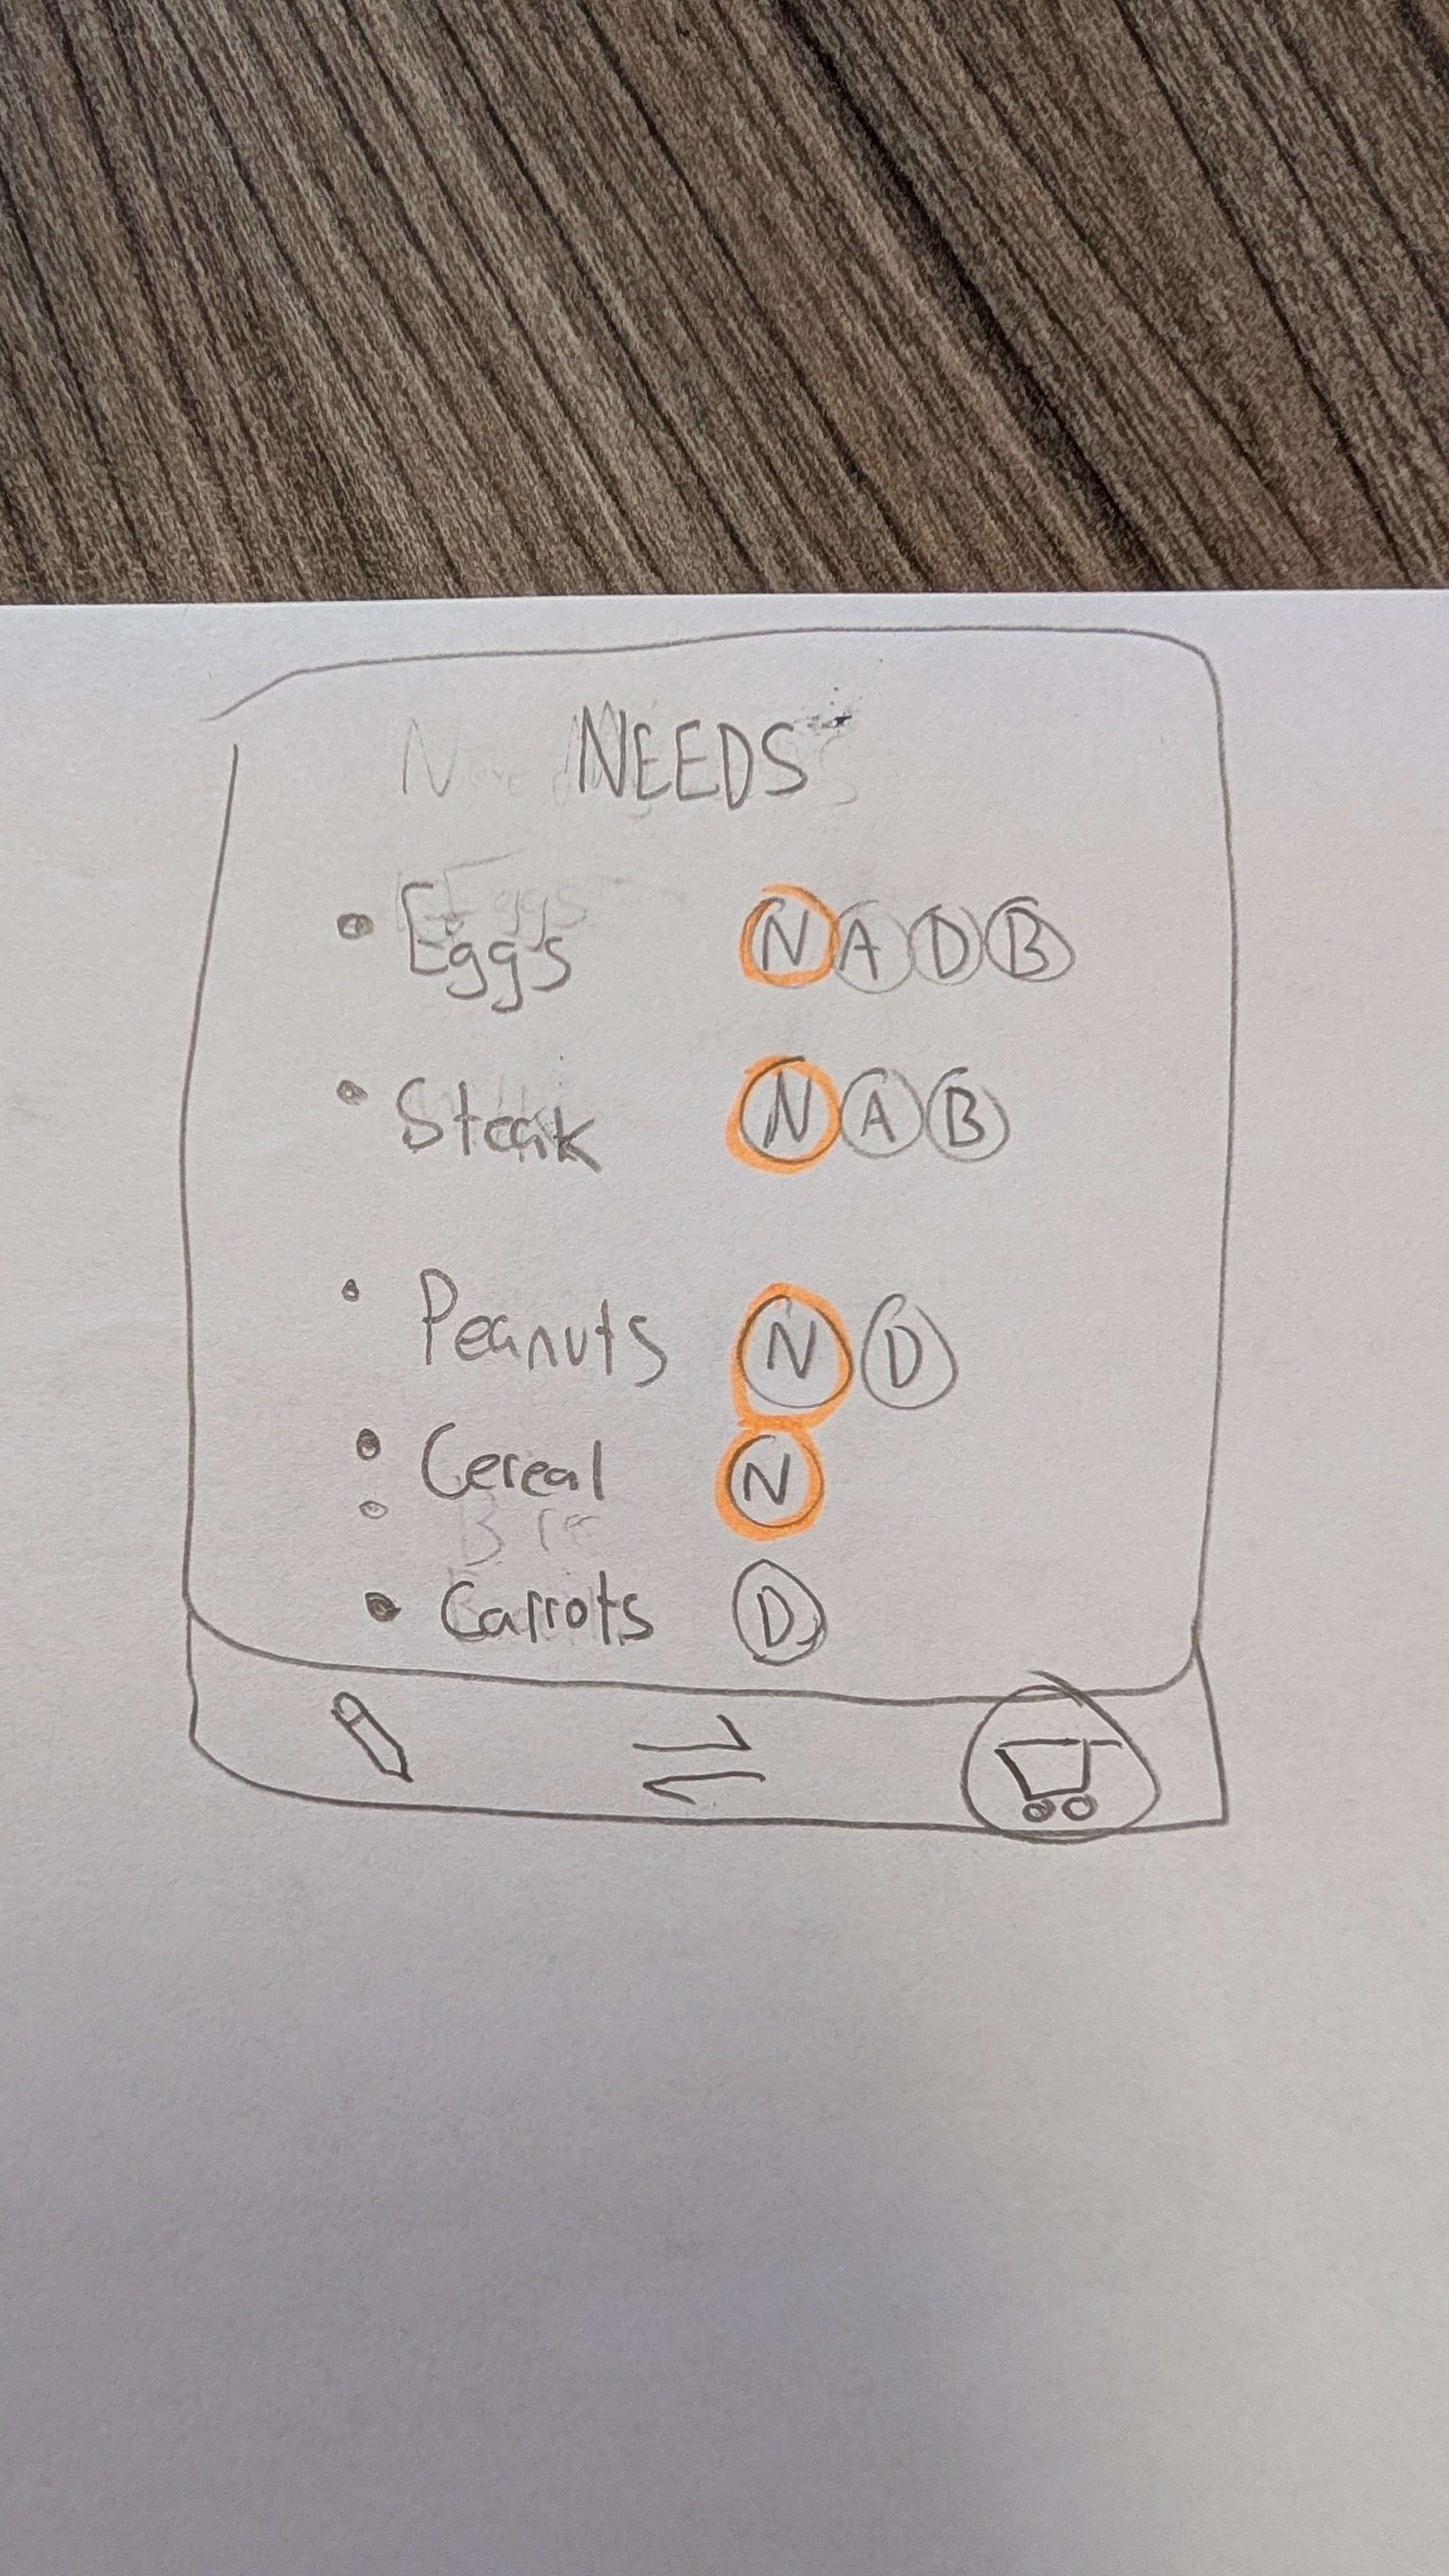 NEEDS
• Eggs N A D B
• Steak N A B
• Peanuts N D
• Cereal N
• Carrots D